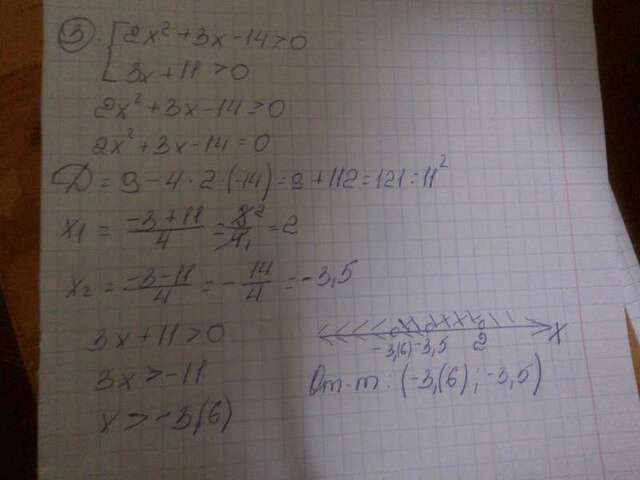 3) { 2x² + 3x - 14 > 0
3x + 11 > 0
2x² + 3x - 14 > 0
2x² + 3x - 14 = 0
D = 9 - 4 · 2 (-14) = 9 + 112 = 121 = 11²
x₁ = (-3 + 11)/4 = 8²/4₁ = 2
x₂ = (-3 - 11)/4 = - 14/4 = -3,5
3x + 11 > 0
3x > -11
x > -3,(6)
-3,(6) -3,5 2 x
От-т: (-3,(6) ; -3,5)